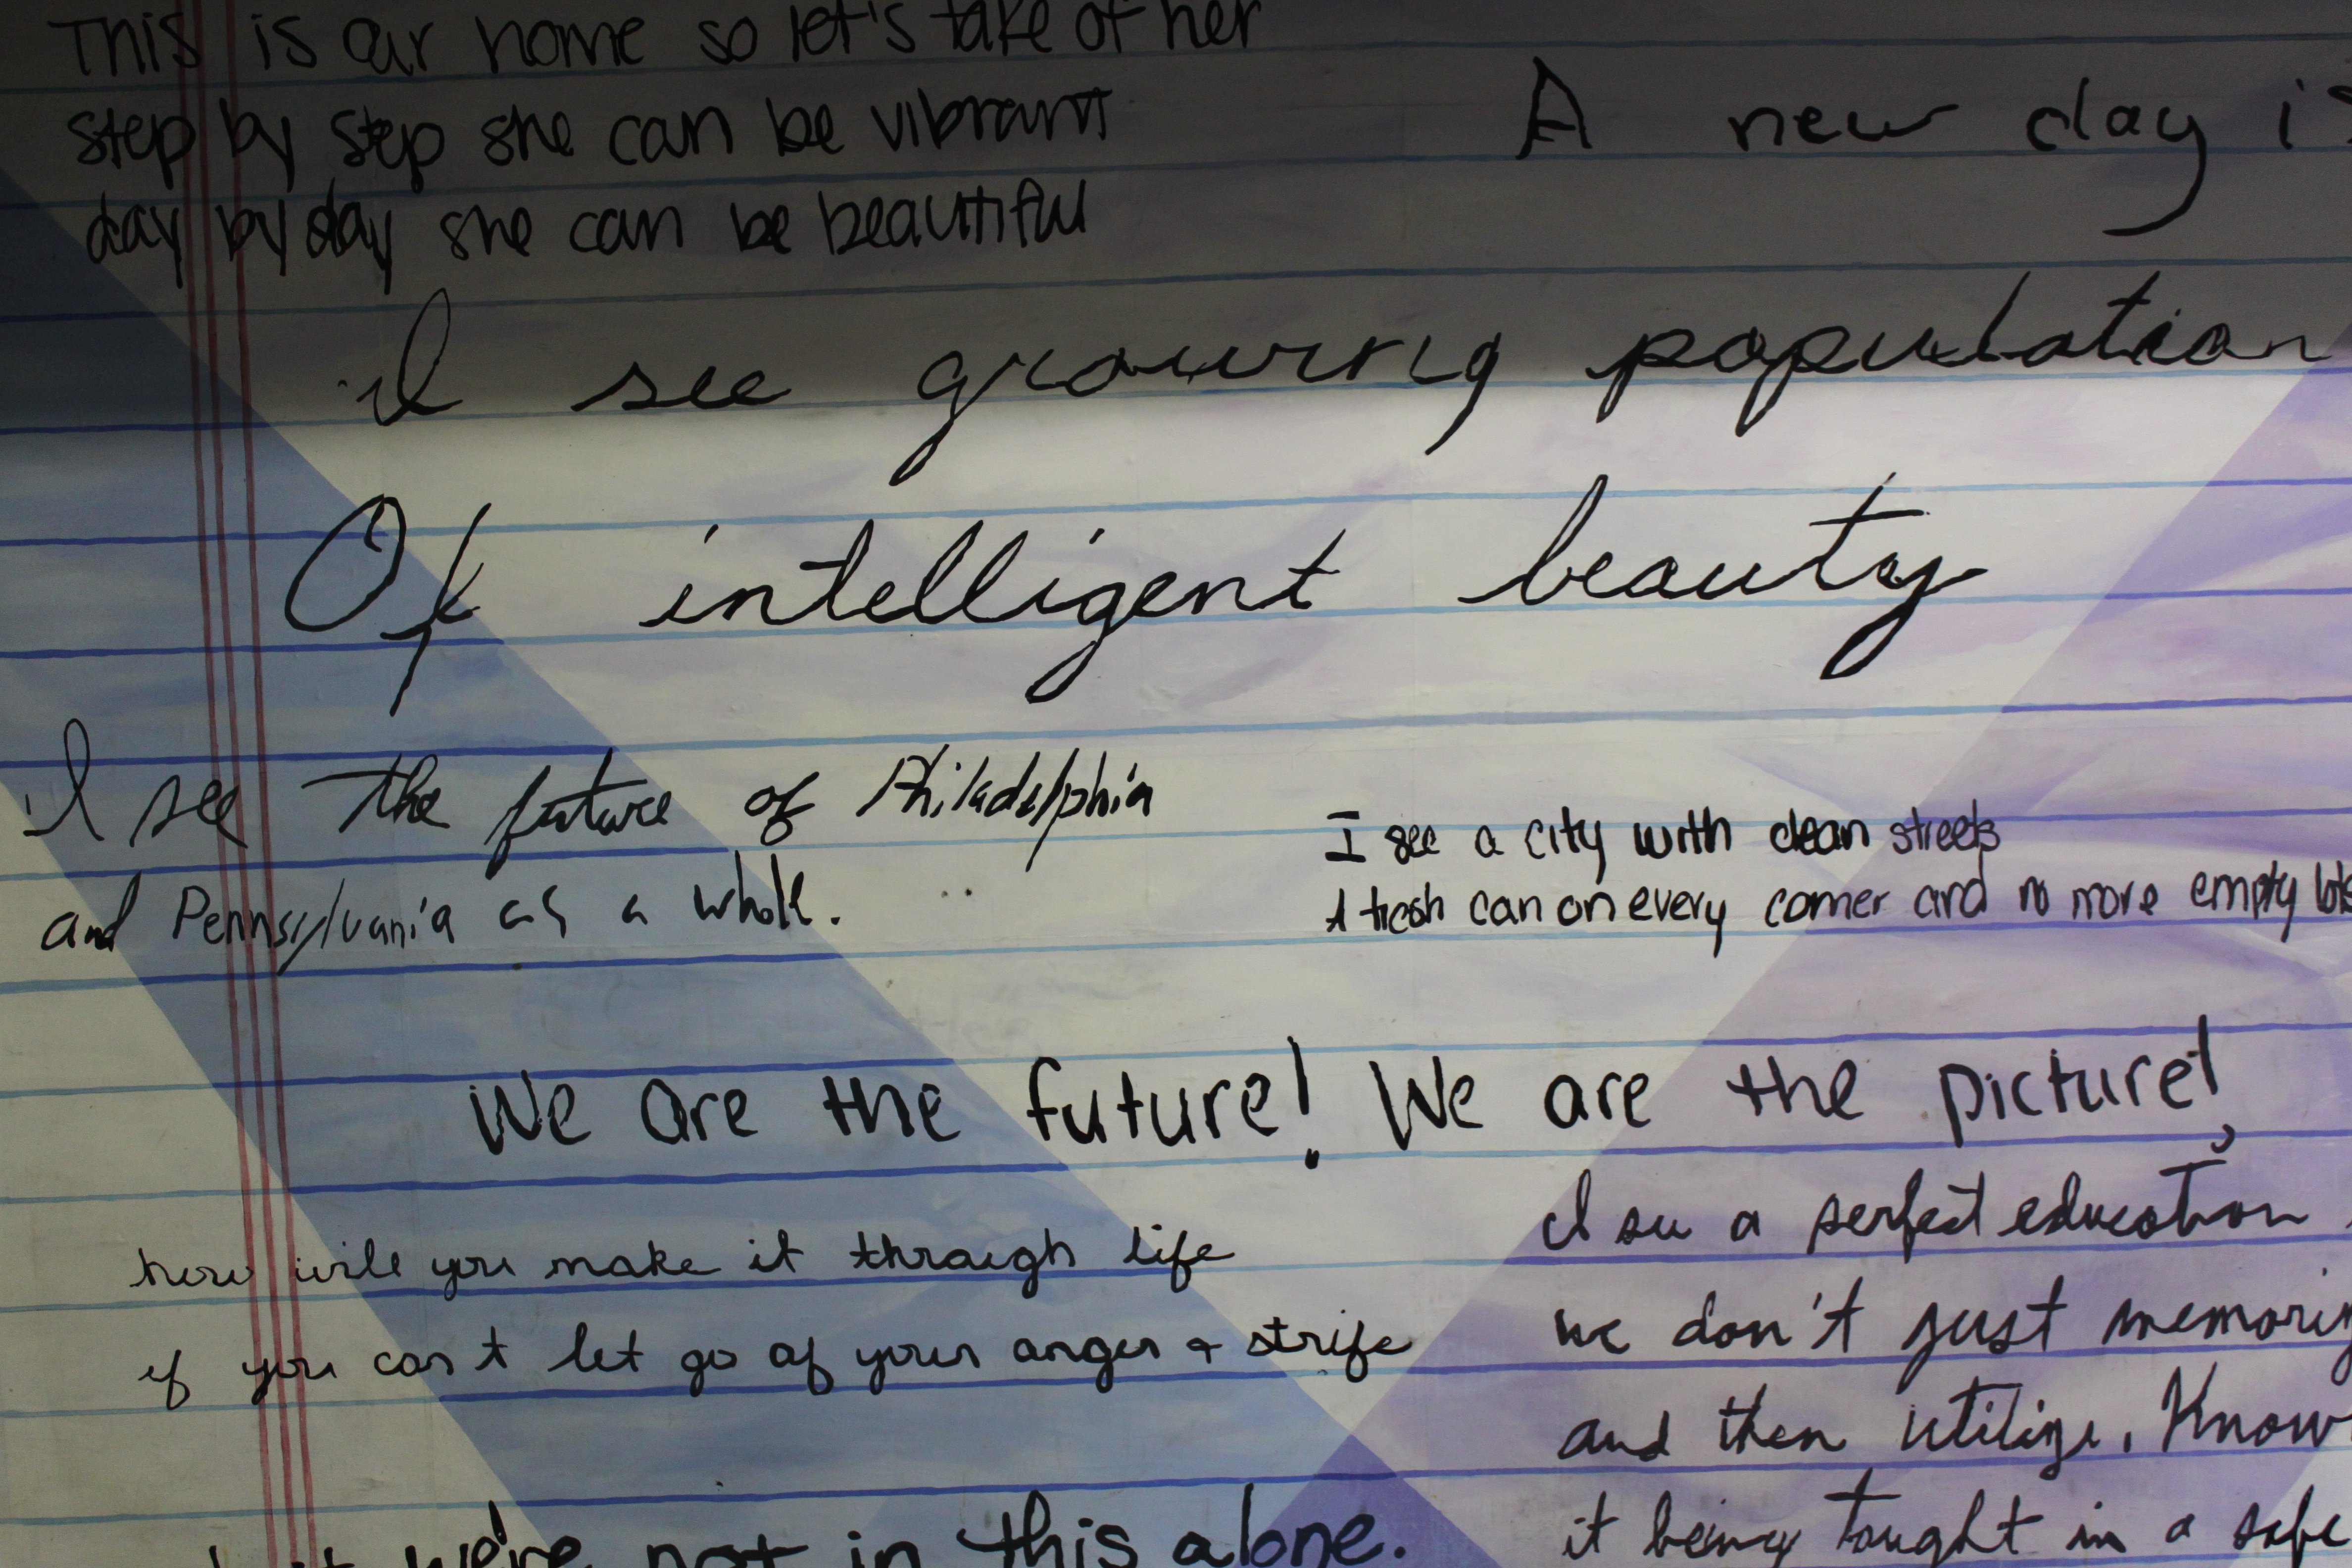 This is our home so let's take of her
step by step she can be vibrant
day by day she can be beautiful
A new day is
I see growing population
Of intelligent beauty
I see the future of Philadelphia
and Pennsylvania as a whole.
I see a city with clean streets
A trash can on every corner and no more empty lots
We are the future! We are the picture!
how will you make it through life
if you can't let go of your anger + strife
I see a perfect education
we don't just
and then utilize.
it being taught in a safe
we're not in this alone.